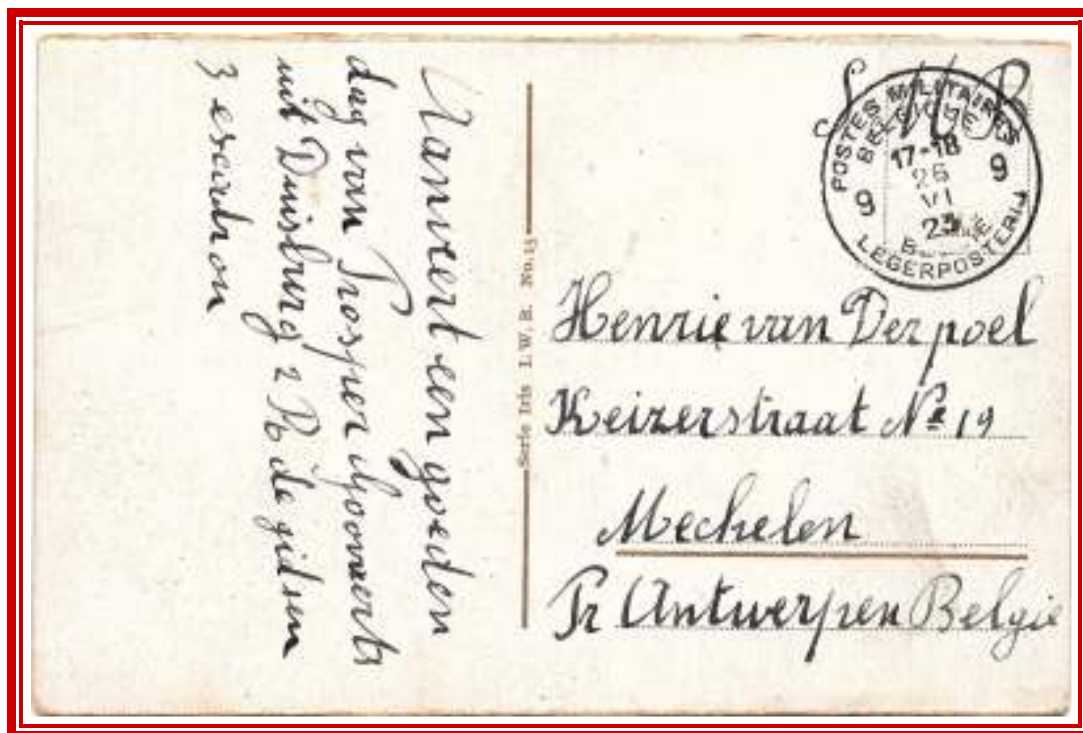 Aanvert een goeden
dag van Prosper Goovaerts
uit Duisburg 2 R de gidsen
3 escadron
Serie Iris I.W.B. No.15
POSTES MILITAIRES
BELGIQUE
17-18
26
VI
23
9 9
LEGERPOSTERIJ
Henrie van Der poel
Keizerstraat No 19
Mechelen
Pr Antwerpen Belgie